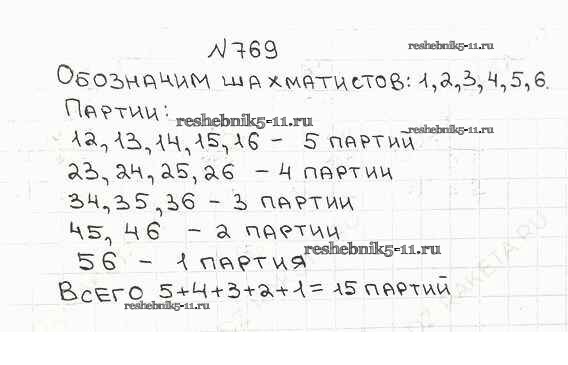 №769
reshebnik5-11.ru
Обозначим шахматистов: 1,2,3,4,5,6.
Партии:
reshebnik5-11.ru
reshebnik5-11.ru
12,13,14,15,16 - 5 партий
23,24,25,26 - 4 партии
34,35,36 - 3 партии
45, 46 - 2 партии
reshebnik5-11.ru
56 - 1 партия
Всего 5+4+3+2+1 = 15 партий
reshebnik5-11.ru